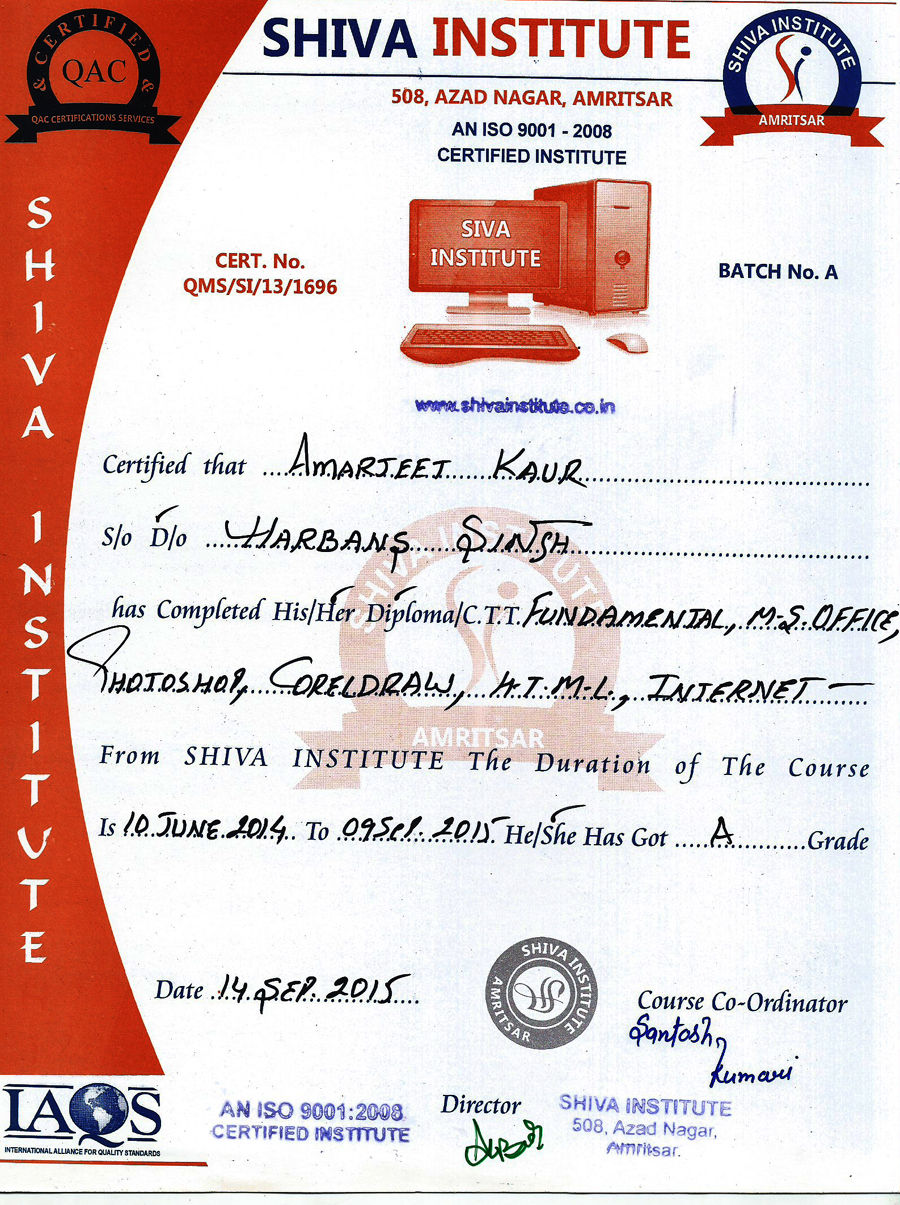 CERTIFIED & &
QAC
QAC CERTIFICATIONS SERVICES
SHIVA INSTITUTE
508, AZAD NAGAR, AMRITSAR
AN ISO 9001 - 2008
CERTIFIED INSTITUTE
SHIVA INSTITUTE
AMRITSAR
SHIVA INSTITUTE
SIVA
INSTITUTE
CERT. No.
QMS/SI/13/1696
BATCH No. A
www.shivainstitute.co.in
Certified that ....AMARJEET KAUR
S/o D/o .....HARBANS SINGH
has Completed His/Her Diploma/C.T.T. FUNDAMENTAL, M-S. OFFICE,
PHOTOSHOP, CORELDRAW, H.T.M-L., INTERNET —
SHIVA INSTITUTE
AMRITSAR
From SHIVA INSTITUTE The Duration of The Course
Is 10 JUNE 2014 To 09 SEP. 2015 He/She Has Got .....A..........Grade
Date 14 SEP. 2015
SHIVA INSTITUTE
AMRITSAR
Course Co-Ordinator
Santosh
Kumari
IAQS
INTERNATIONAL ALLIANCE FOR QUALITY STANDARDS
AN ISO 9001:2008
CERTIFIED INSTITUTE
Director
SHIVA INSTITUTE
508, Azad Nagar,
Amritsar.